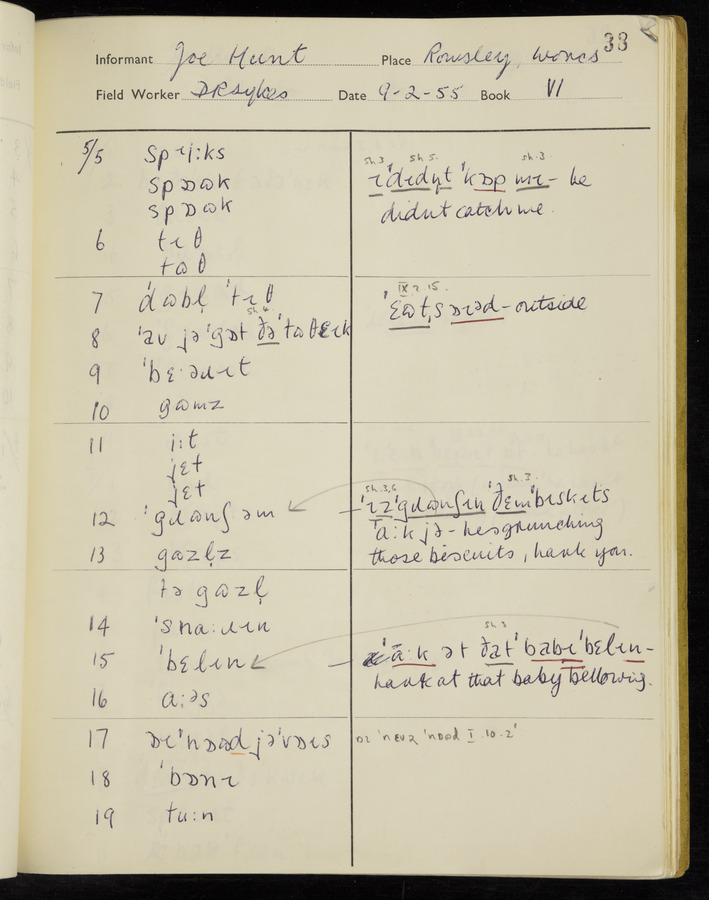 33
Informant Joe Hunt Place Romsley, Worcs
Field Worker D R Sykes Date 9-2-55 Book VI
5/5 spɹiːks
spɒɷk
spɒɷk
sh.3 sh.5. sh.3
ɪ ˈdɪdn̩t ˈkɒp mɪ – he
didnt catch me.
6 tɪθ
tɷθ
7 ˈdɷbl̩ ˈtɪθ
IX 2 15.
ˈɛɷtˌsɒɪəd – outside
sh.4
8 ˈav jə ˈgɒt ðə ˈtɷθɛɪk
9 ˈbɛˑəɹɪt
10 gɷmz
11 iːt
jɛt
jɛt
12 ˈgɹɷunʃ əm
sh.3,6 sh.3.
ˈɪz ˈgɹɷunʃɪn ˈðɛm ˈbɪskɪts
ˈaːk jə – hes grunching
those biscuits, hark you.
13 gɷzl̩z
tə gɷzl̩
14 ˈsnaːɹɪn
15 ˈbɛlɪn
sh 3
ˈaːk ət ðat ˈbabɪ ˈbɛlɪn –
hark at that baby bellowing.
16 aːəs
17 ɒɪ ˈnɒɷd jə ˈvɒɪs
ɒɪ ˈnɛvə ˈnɒɷd I.10.2
18 ˈbɒnɪ
19 tuːn